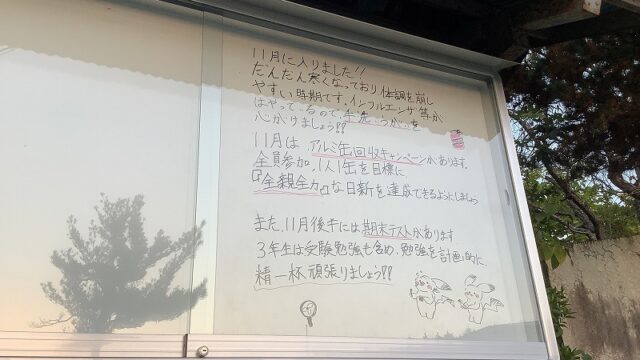 11月に入りました!!
だんだん寒くなっており体調を崩し
やすい時期です。インフルエンザ等が
はやっているので、手洗、うがいを
心がけましょう??
11月は、アルミ缶回収キャンペーンがあります。
全員参加、1人1缶を目標に
『全親全力』な日新を達成できるようにしましょう
また、11月後半には期末テストがあります
3年生は受験勉強も含め、勉強を計画的に
精一杯頑張りましょう??